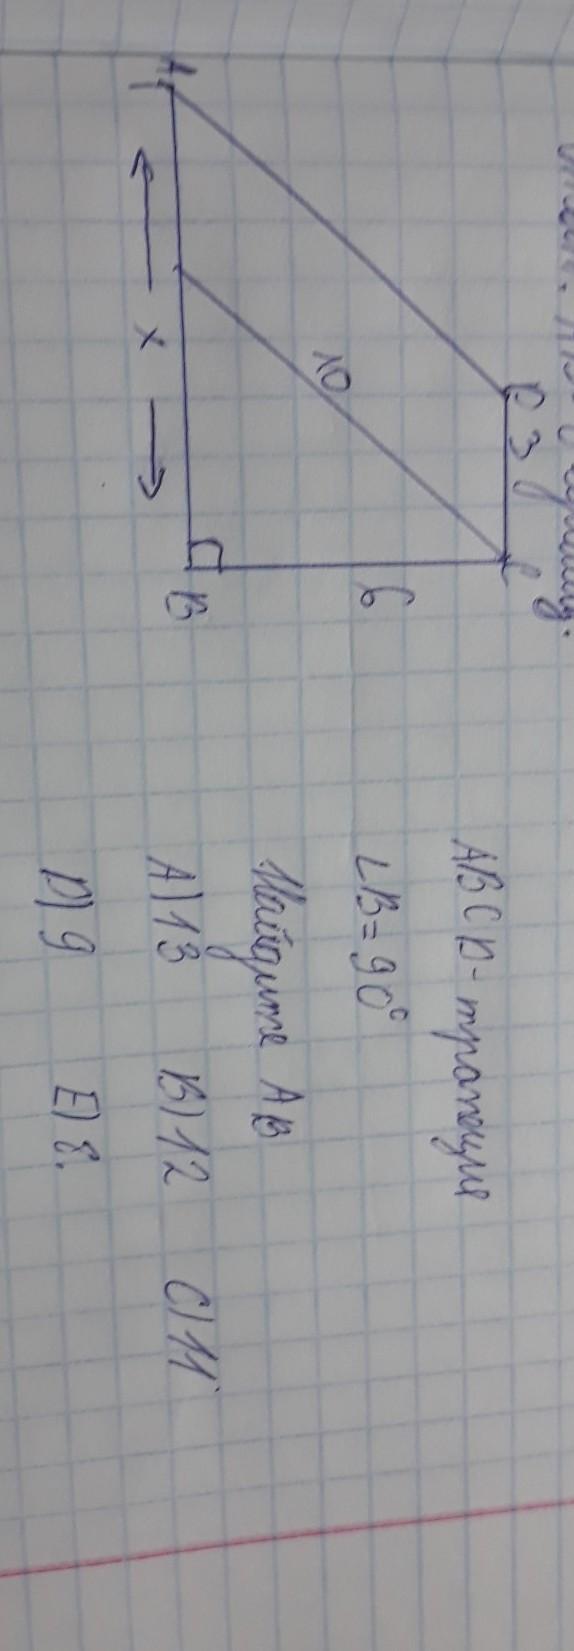 A
D 3 C
10
6
x
B
ABCD - трапеция
∠B = 90°
Найдите AB
A) 13 B) 12 C) 11
D) 9 E) 8.